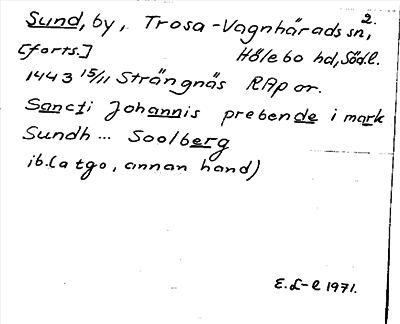 2.
Sund, by, Trosa-Vagnhärads sn,
[forts.] Hölebo hd, Södl.
1443 15/11 Strängnäs RAp or.
Sancti Johannis prebende i mark
Sundh ... Soolberg
ib. (atgo, annan hand)
E.L-l 1971.